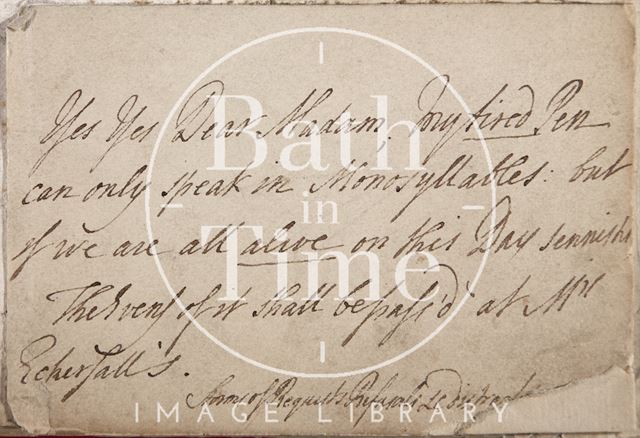 Yes Yes Dear Madam, my tired Pen
can only speak in Monosyllables: but
if we are all alive on this Day sennight
The Even of it shall be pass'd at Mrs
Eckersall's.
of Requests Refusals &
Bath
in
Time
IMAGE LIBRARY